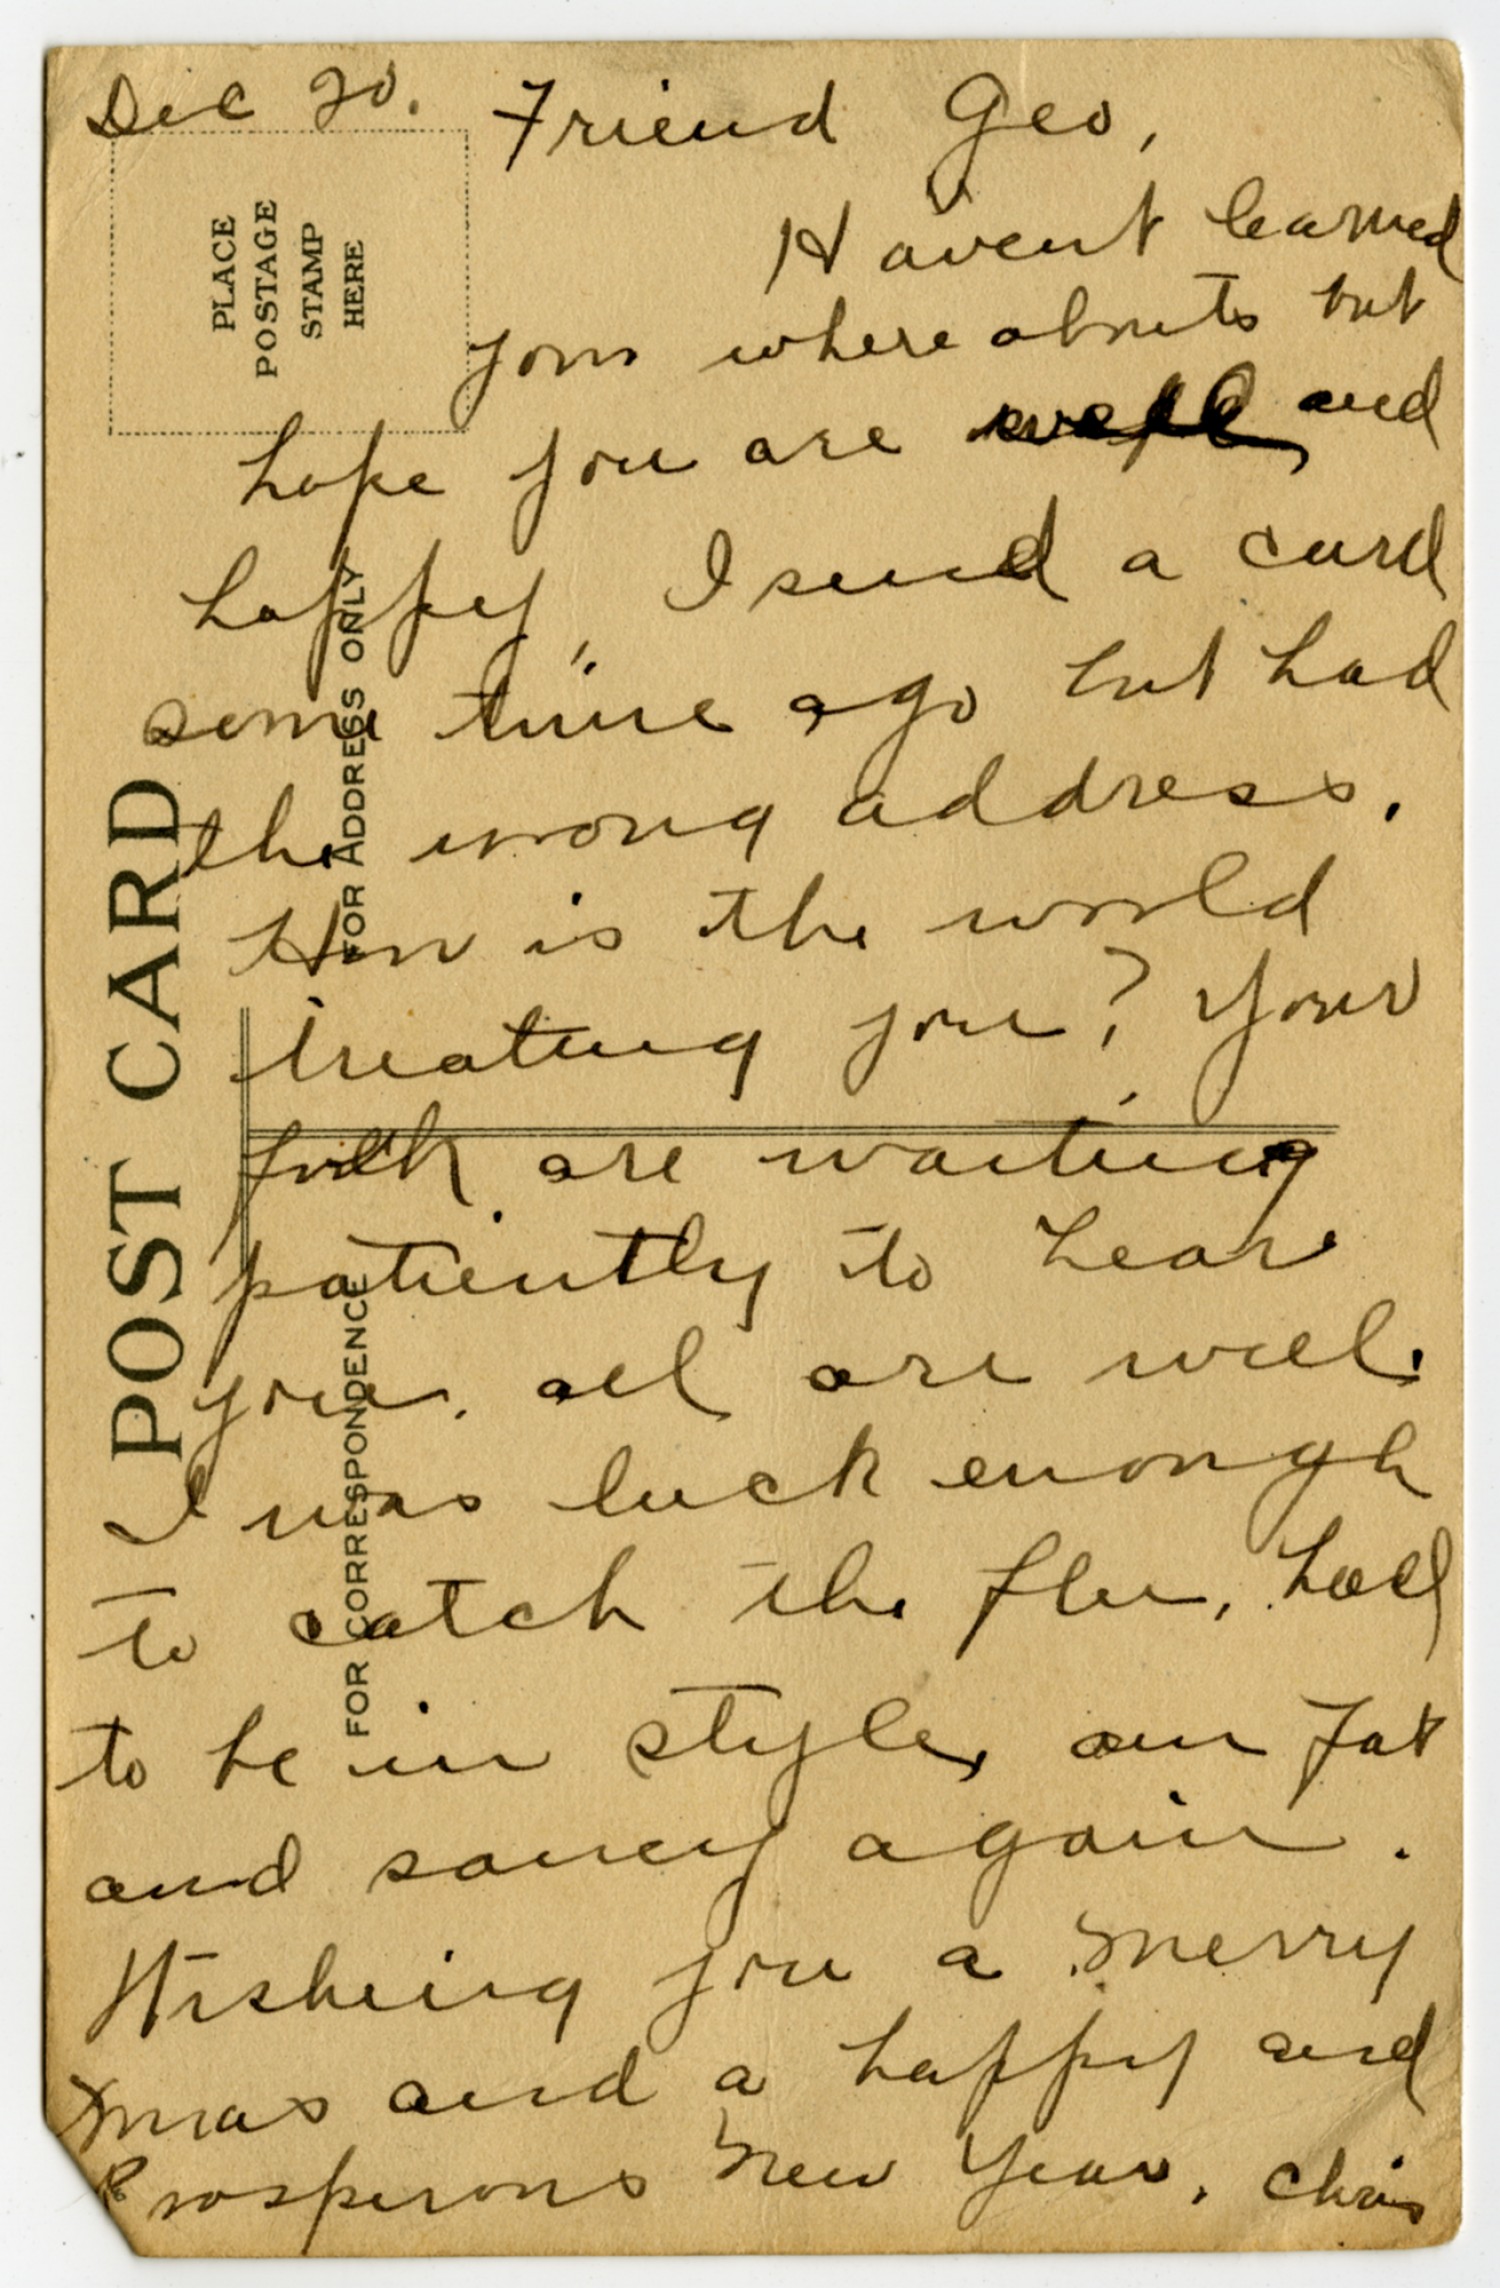 Dec 20. Friend Geo,
Havent learned
your where abouts but
hope you are well and
happy, I send a card
some time ago but had
the wrong address.
How is the world
treating you? Your
folk are waiting
patiently to hear
you. all are well.
I was luck enough
to catch the flu, had
to be in style, am fat
and saucy again.
Wishing you a merry
Xmas and a happy and
Prosperous New Year. Chris
PLACE
POSTAGE
STAMP
HERE
POST CARD
FOR ADDRESS ONLY
FOR CORRESPONDENCE